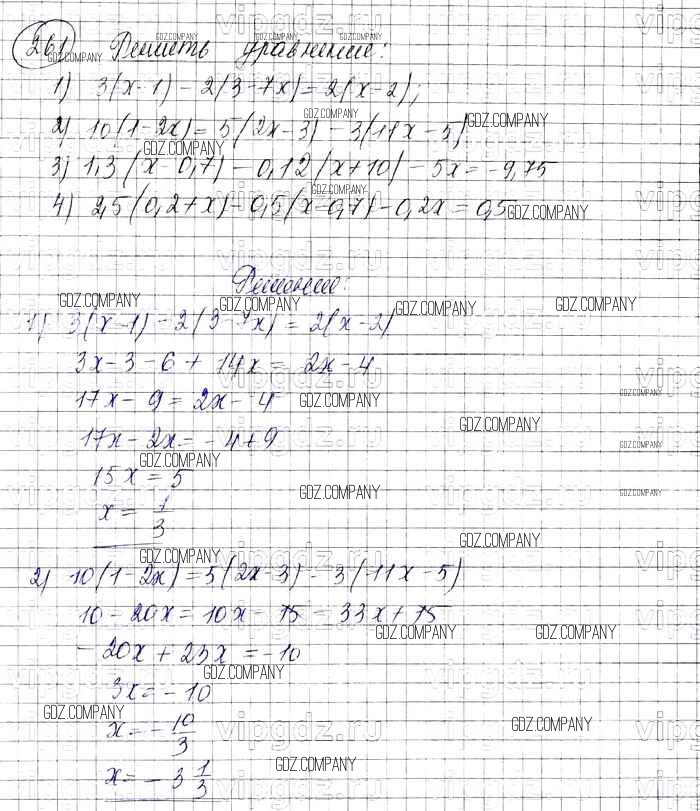 261 Решить уравнение:
1) 3(x-1) - 2(3-7x) = 2(x-2);
2) 10(1-2x) = 5(2x-3) - 3(11x-5)
3) 1,3(x-0,7) - 0,12(x+10) - 5x = -9,75
4) 2,5(0,2+x) - 0,5(x-0,7) - 0,2x = 0,5
Решение:
1) 3(x-1) - 2(3-7x) = 2(x-2)
3x - 3 - 6 + 14x = 2x - 4
17x - 9 = 2x - 4
17x - 2x = -4 + 9
15x = 5
x = 1/3
2) 10(1-2x) = 5(2x-3) - 3(11x-5)
10 - 20x = 10x - 15 - 33x + 15
-20x + 23x = -10
3x = -10
x = - 10/3
x = - 3 1/3
GDZ.COMPANY
vipgdz.ru